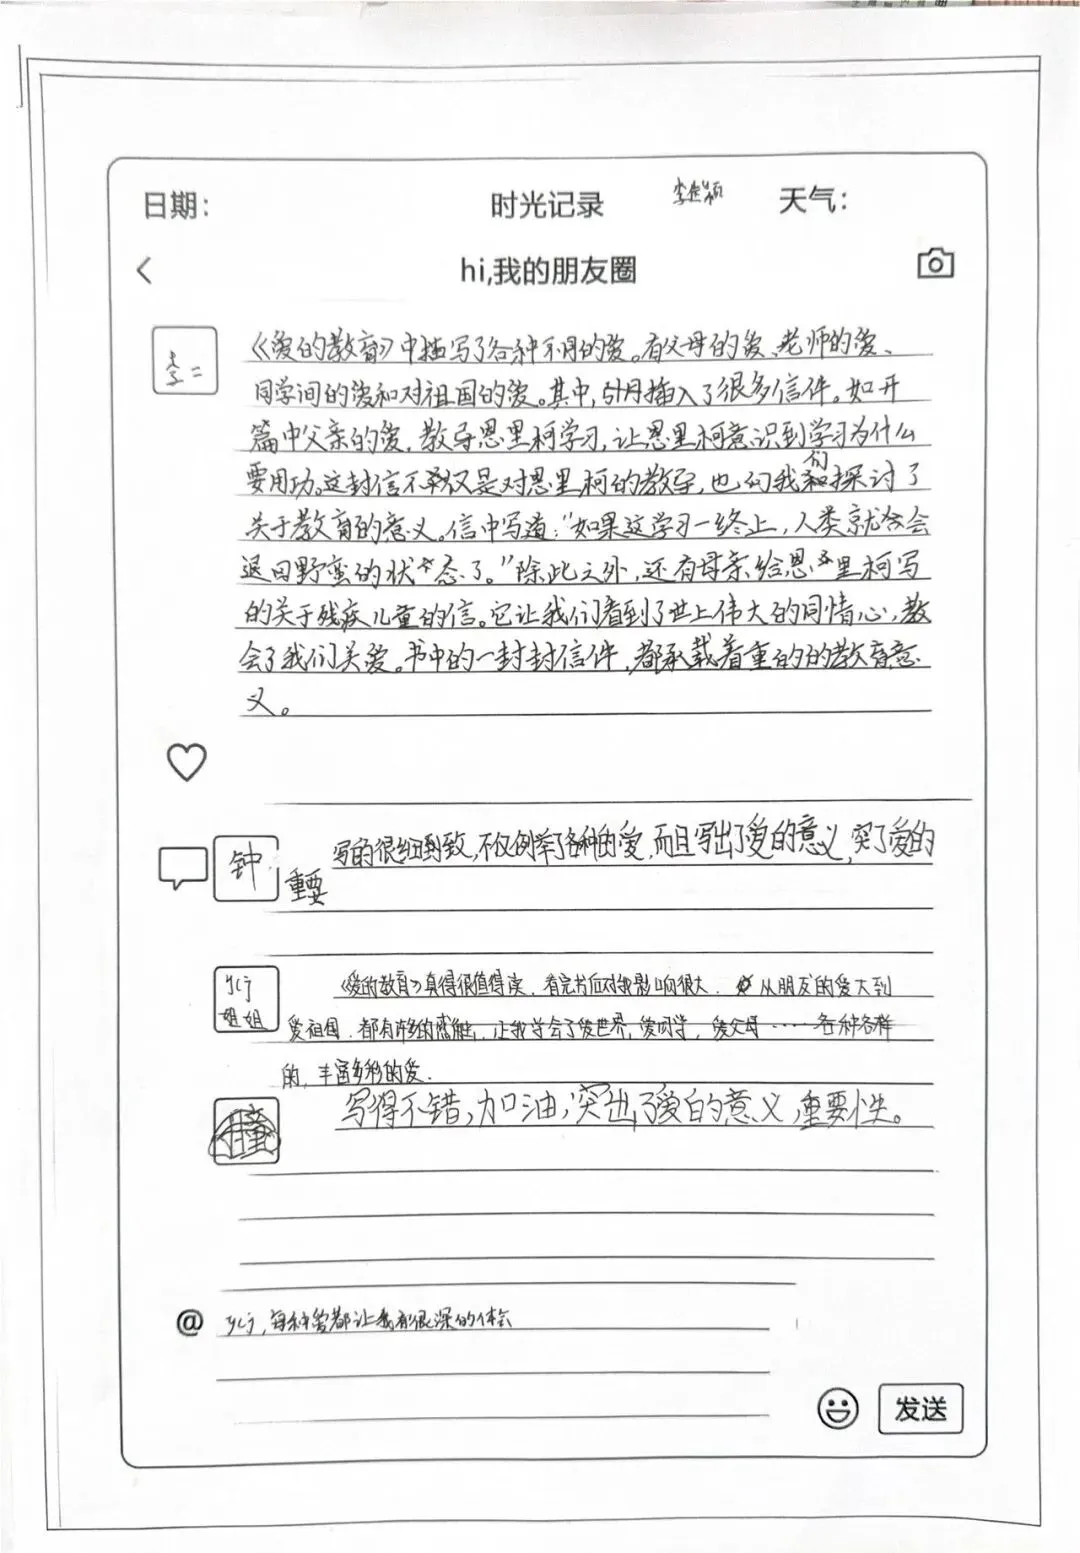 日期：
时光记录
天气：
hi,我的朋友圈
李二
《爱的教育》中描写了各种不同的爱。有父母的爱、老师的爱、
同学间的爱和对祖国的爱。其中,插入了很多信件。如开
篇中父亲的爱,教导恩里柯学习,让恩里柯意识到学习为什么
要用功。这封信不仅是对恩里柯的教导,也们我和们探讨了
关于教育的意义。信中写道:“如果这学习一终止,人类就会
退回野蛮的状态了。”除此之外,还有母亲给恩里柯写
的关于残疾儿童的信。它让我们看到了世上伟大的同情心,教
会了我们关爱。书中的一封封信件,都承载着重的的教育意
义。
钟
写的很细致,不仅例举了各种的爱,而且写出了爱的意义,突了爱的
重要
姐姐
《爱的教育》真得很值得读.看完书后对我影响很大. 从朋友的爱大到
爱祖国.都有许多的感触.让我学会了爱世界,爱同学,爱父母……各种各样
的,丰富多彩的爱.
写得不错,加油,突出了爱的意义,重要性。
@
每种爱都让我有很深的体会
发送